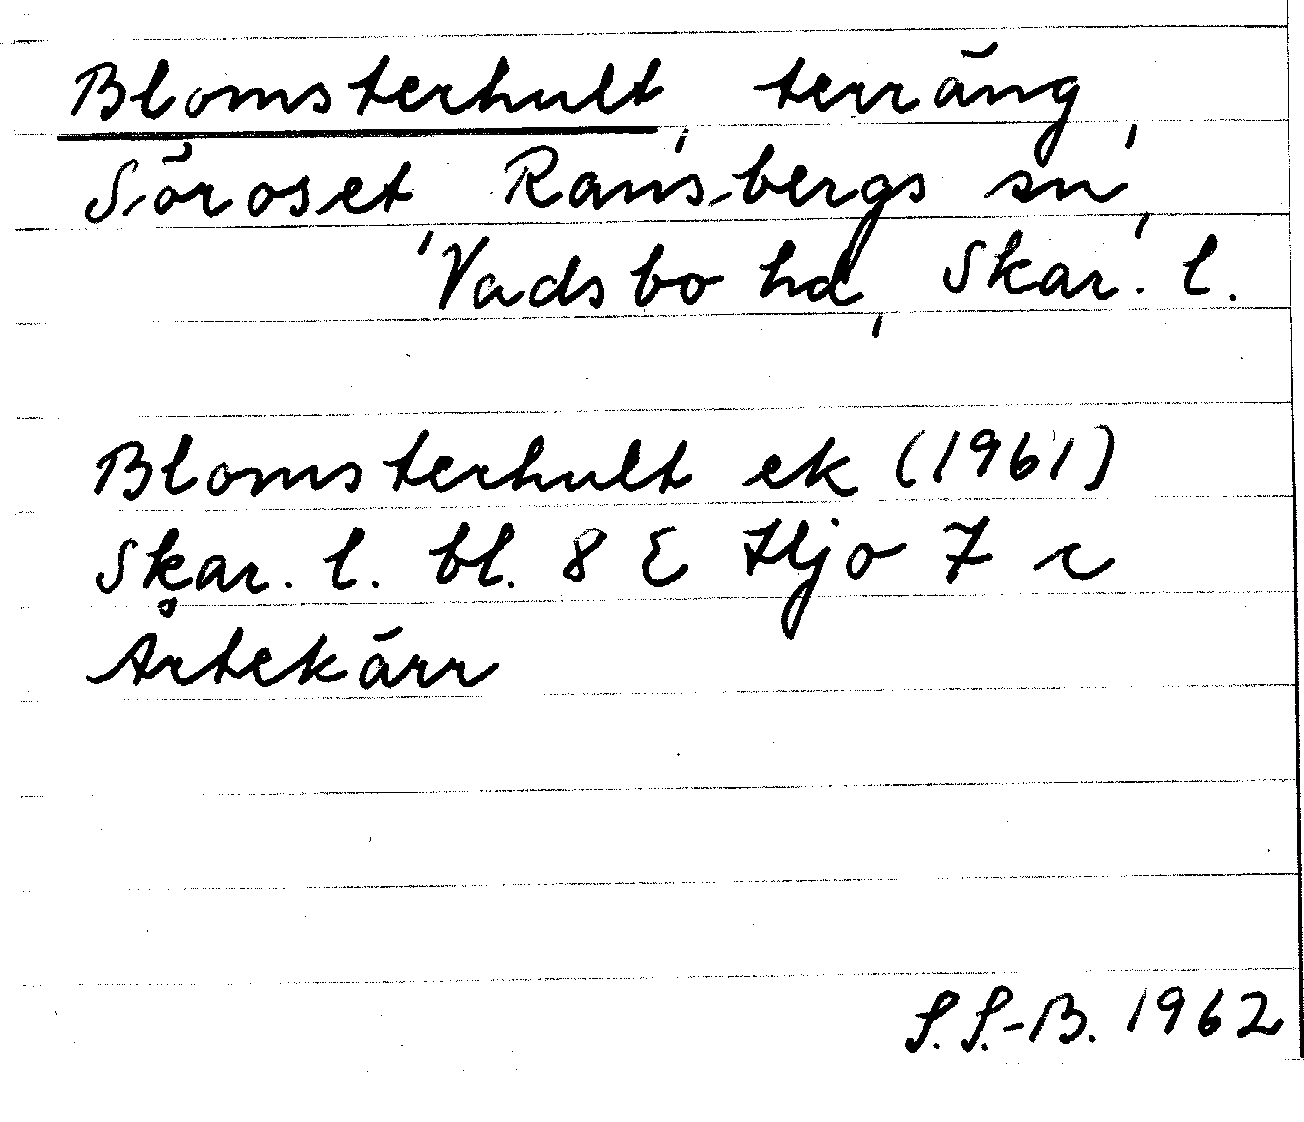 Blomsterhult, terräng,
Söroset, Ransbergs sn,
Vadsbo hd, Skar. l.
Blomsterhult ek (1961)
Skar. l. bl. 8 E Hjo 7 c
Årtekärr
S.S.-B. 1962